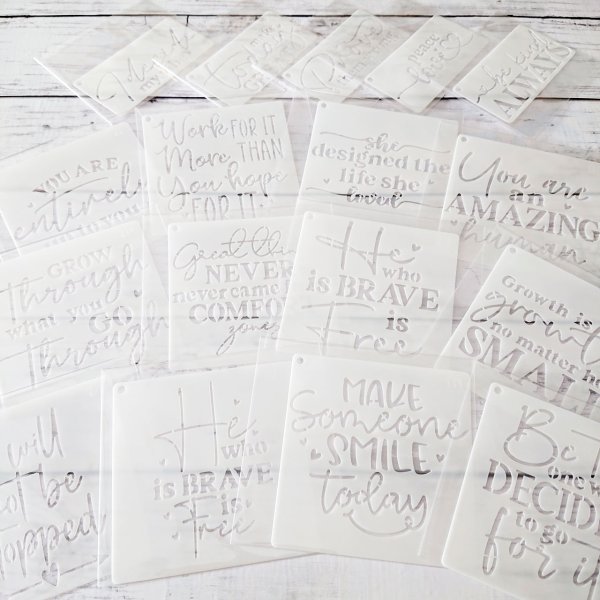 peace
love
she
be kind
ALWAYS
YOU ARE
entirely
up to you
Work FOR IT
More THAN
You hope
FOR IT
she
designed the
life she
loved
You are
an
AMAZING
human
GROW
Through
what you
GO
Through
Great thin
NEVER
never came
COMFO
zones
He
who
is BRAVE
is
Free
Growth is
growth
no matter ho
SMALL
will
not be
stopped
He
who
is BRAVE
is
Free
MAKE
Someone
SMILE
today
Be T
one w
DECID
to go
for it